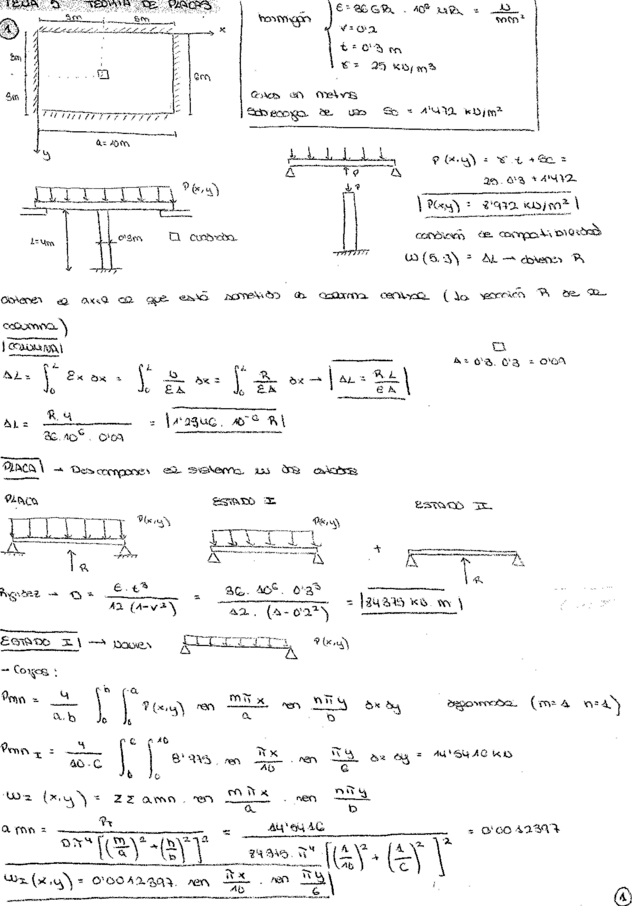 TEMA 5 TEORIA DE PLACAS
1
5m 5m x
3m
3m
6m
a = 10m
y
hormigón
E = 36 GPa · 10⁶ MPa = N/mm²
ν = 0'2
t = 0'3 m
γ = 25 kN/m³
Cotas en metros
Sobrecarga de uso Sc = 1'472 kN/m²
P(x,y)
L = 4m
0'3m
cuadrada
P
P
P(x,y) = γ · t + Sc =
25 · 0'3 + 1'472
P(x,y) = 8'972 kN/m²
condición de compatibilidad
ω(5,3) = ΔL → obtener R
obtener el axil al que está sometido la columna central (la reacción R de la
columna)
COLUMNA
ΔL = ∫₀ᴸ εx dx = ∫₀ᴸ σ/E dx = ∫₀ᴸ R/EA dx → ΔL = R·L/EA
A = 0'3 · 0'3 = 0'09
ΔL = R·4 / 36·10⁶ · 0'09 = 1'2346 · 10⁻⁶ R
PLACA → Descomponer el sistema en dos estados
PLACA ESTADO I ESTADO II
P(x,y) P(x,y)
+
R R
Rigidez → D = E·t³ / 12(1-ν²) = 36·10⁶·0'3³ / 12·(1-0'2²) = 84375 kN·m
ESTADO I → Navier P(x,y)
- Cargas:
Pmn = 4/a·b ∫₀ᵇ ∫₀ᵃ P(x,y) sen mπx/a sen nπy/b dx dy (m=1 n=1)
Pmn I = 4/10·6 ∫₀⁶ ∫₀¹⁰ 8'975 · sen πx/10 · sen πy/6 dx dy = 14'5416 kN
ωI (x,y) = ΣΣ amn · sen mπx/a · sen nπy/b
amn = PI / Dπ⁴[(m/a)² + (n/b)²]² = 14'5416 / 84375 · π⁴[(1/10)² + (1/6)²]² = 0'0012397
ωI(x,y) = 0'0012397 · sen πx/10 · sen πy/6
1